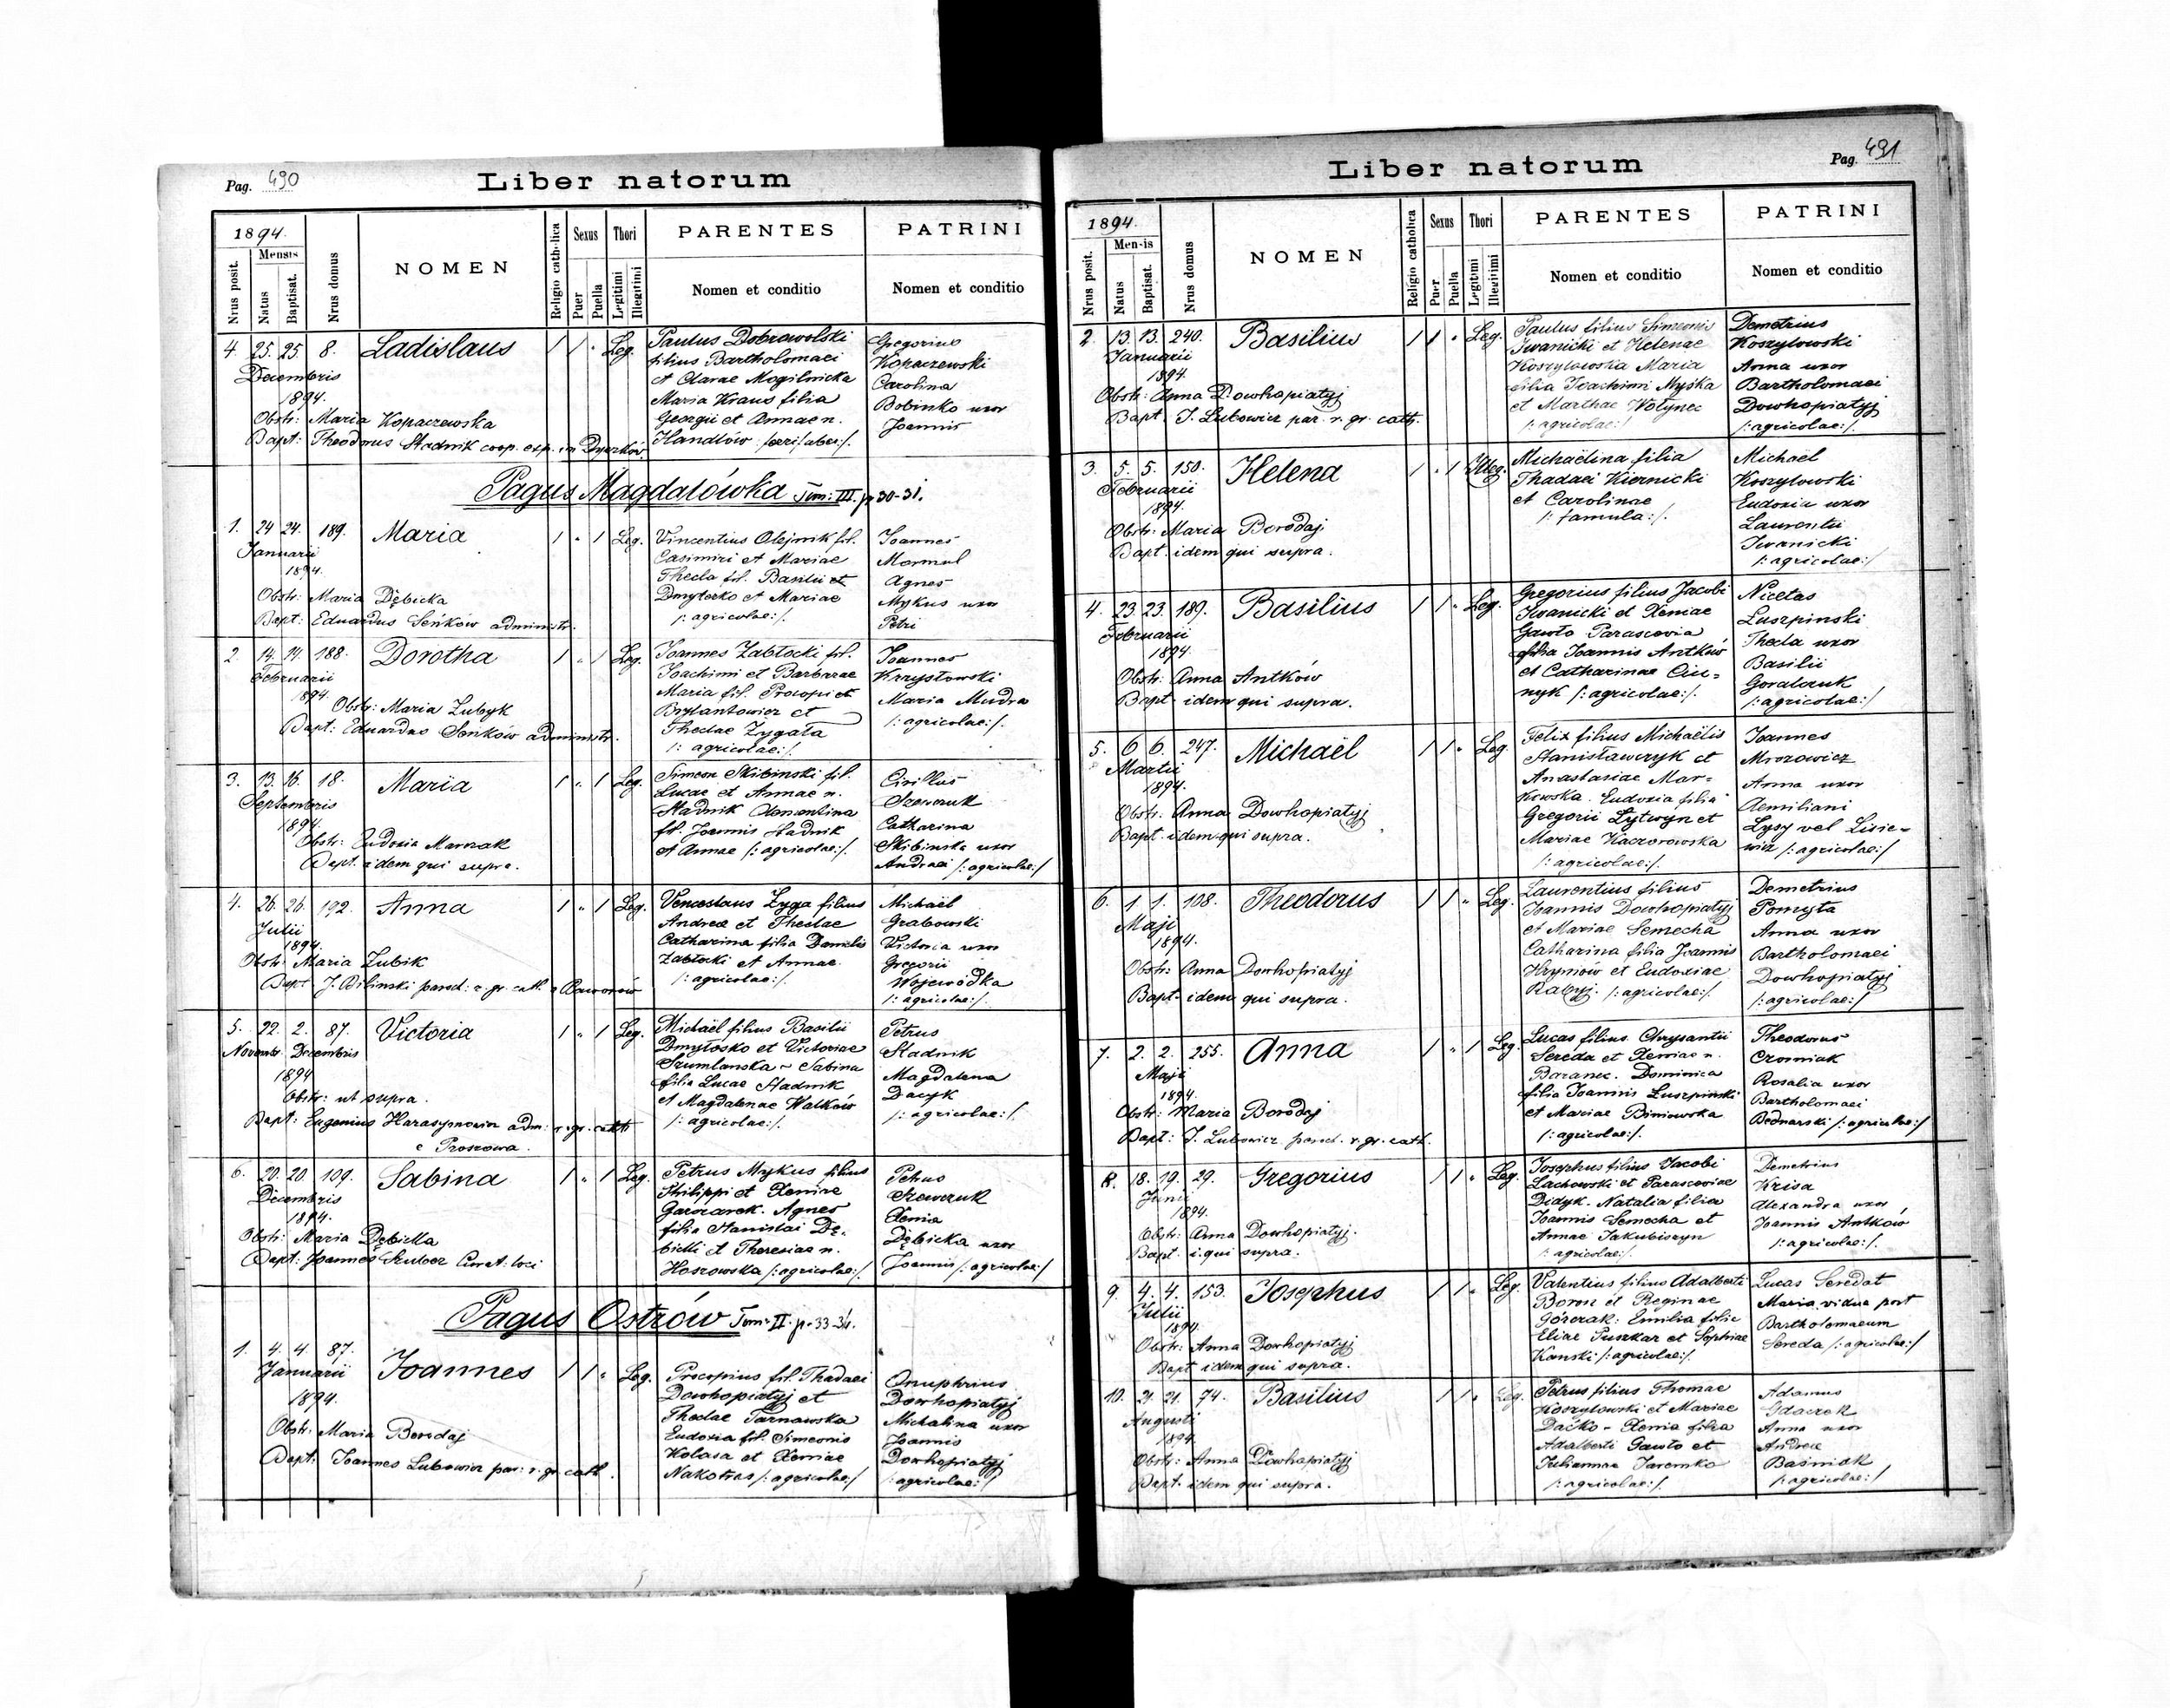 Pag. 490
Liber natorum
1894.
Mensis
Nrus posit.
Natus
Baptisat.
Nrus domus
NOMEN
Religio catholica
Sexus
Puer
Puella
Thori
Legitimi
Illegitimi
PARENTES
Nomen et conditio
PATRINI
Nomen et conditio
4. 25. 25. 8. Ladislaus / / " Leg.
Decembris
1894.
Obstr: Maria Kopaczewska
Bapt: Theodorus Stadnik coop. exp. in
Paulus Dobrowolski
filius Bartholomaei
et Clarae Mogilnicka
Maria Kraus filia
Georgii et Annae n.
Handlów
Gregorius
Kopaczewski
Carolina
Bobinko uxor
Joannis
Pagus Magdalówka Tom: III. p. 30-31.
1. 24 24. 189. Maria / " / Leg.
Januarii
1894.
Obstr: Maria Dębicka
Bapt: Eduardus Seńków administr.
Vincentius Olejnik fil.
Casimiri et Mariae
Thecla fil. Basilii et
Dmyterko et Mariae
/: agricolae:/.
Joannes
Mormul
Agnes
Mykus uxor
Petri
2. 14. 14. 188. Dorotha / " / Leg.
Februarii
1894.
Obstr: Maria Zubyk
Bapt: Eduardus Seńków administr.
Joannes Zabłocki fil.
Joachimi et Barbarae
Maria fil. Procopii et
Brylantowicz et
Theclae Zygała
/: agricolae:/.
Joannes
Krzysłowski
Maria Mudra
/: agricolae:/.
3. 13. 16. 18. Maria / " / Leg.
Septembris
1894.
Obstr: Eudoxia Marnak
Bapt. idem qui supra.
Simeon Skibinski fil.
Lucae et Annae n.
Stadnik Clementina
fil. Joannis Stadnik
et Annae /: agricolae:/.
Cirillus
Szewczuk
Catharina
Skibinska uxor
Andreae /: agricolae:/
4. 26. 26. 192. Anna / " / Leg.
Julii
1894.
Obstr: Maria Zubik
Bapt: J. Bilinski paroch: r. gr. cath. Baworów
Venceslaus Zyga filius
Andreae et Theclae
Catharina filia Danielis
Zabłocki et Annae
/: agricolae:/.
Michaël
Grabowski
Victoria uxor
Gregorii
Wojewódka
/: agricolae:/.
5. 22. 2. 87. Victoria / " / Leg.
Novembr. Decembris
1894
Obstr: ut supra.
Bapt: Eugenius Harasymowicz adm: r. gr. cath
e Proszowa.
Michaël filius Basilii
Dmytosko et Victoriae
Szumlanska ~ Sabina
filia Lucae Stadnik
et Magdalenae Walków
/: agricolae:/.
Petrus
Stadnik
Magdalena
Dacyk
/: agricolae:/.
6. 20. 20. 109. Sabina / " / Leg.
Decembris
1894.
Obstr: Maria Dębicka
Bapt: Joannes Szuber Curat: loci
Petrus Mykus filius
Philippi et Xeniae
Garczarek. Agnes
filia Stanislai Dę-
bicki et Theresiae n.
Hoszowska /: agricolae:/.
Petrus
Szewczuk
Xenia
Dębicka uxor
Joannis /: agricolae:/
Pagus Ostrów Tom: II. p. 33-34.
1. 4. 4. 87. Joannes / / " Leg.
Januarii
1894.
Obstr: Maria Borodaj
Bapt: Joannes Lubowicz par: r. gr. cath.
Procopius fil. Thadaei
Dowhopiatyj et
Theclae Tarnawska
Eudoxia fil. Simeonis
Kolasa et Xeniae
Nakotras /: agricolae:/
Onuphrius
Dowhopiatyj
Michalina uxor
Joannis
Dowhopiatyj
/: agricolae:/
Pag. 491
Liber natorum
1894.
Men-is
Nrus posit.
Natus
Baptisat.
Nrus domus
NOMEN
Religio catholica
Sexus
Puer
Puella
Thori
Legitimi
Illegitimi
PARENTES
Nomen et conditio
PATRINI
Nomen et conditio
2. 13. 13. 240. Basilius / / " Leg.
Januarii
1894.
Obstr: Anna Dowhopiatyj
Bapt. J. Lubowicz par. r. gr. cath.
Paulus filius Simeonis
Iwanicki et Helenae
Koszylowska Maria
filia Joachimi Myśka
et Marthae Wołynec
/: agricolae:/
Demetrius
Koszylowski
Anna uxor
Bartholomaei
Dowhopiatyj
/: agricolae:/.
3. 5. 5. 150. Helena / " / Illeg.
Februarii
1894.
Obstr: Maria Borodaj
Bapt. idem qui supra.
Michaëlina filia
Thadaei Kiernicki
et Carolinae
/: famula:/.
Michael
Koszylowski
Eudoxia uxor
Laurentii
Iwanicki
/: agricolae:/
4. 23. 23. 189. Basilius / / " Leg.
Februarii
1894.
Obstr: Anna Antków
Bapt. idem qui supra.
Gregorius filius Jacobi
Iwanicki et Xeniae
Gawło Parascevia
filia Joannis Antków
et Catharinae
nyk /: agricolae:/.
Nicetas
Luszpinski
Thecla uxor
Basilii
Goralczuk
/: agricolae:/
5. 6. 6. 247. Michaël / / " Leg.
Martii
1894.
Obstr: Anna Dowhopiatyj
Bapt. idem qui supra.
Felix filius Michaëlis
Stanisławczyk et
Anastasiae Mar-
kowska. Eudoxia filia
Gregorii Lytwyn et
Mariae Kaczorowska
/: agricolae:/.
Joannes
Mrozowicz
Anna uxor
Aemiliani
Lysy vel Lisie-
wicz /: agricolae:/
6. 1. 1. 108. Theodorus / / " Leg.
Maji
1894.
Obstr: Anna Dowhopiatyj
Bapt. idem qui supra.
Laurentius filius
Joannis Dowhopiatyj
et Mariae Semecha
Catharina filia Joannis
Hryniów et Eudoxiae
/: agricolae:/.
Demetrius
Pomyta
Anna uxor
Bartholomaei
Dowhopiatyj
/: agricolae:/
7. 2. 2. 255. Anna / " / Leg.
Maji
1894.
Obstr: Maria Borodaj
Bapt: J. Lubowicz paroch. r. gr. cath.
Lucas filius Chrysantii
Sereda et Xeniae n.
Baranec. Dominica
filia Joannis Luszpinski
et Mariae Biniowska
/: agricolae:/.
Theodorus
Czorniak
Rosalia uxor
Bartholomaei
Bednarski /: agricolae:/
8. 18. 19. 29. Gregorius / / " Leg.
Junii
1894.
Obstr: Anna Dowhopiatyj.
Bapt. i. qui supra.
Josephus filius Jacobi
Lachowski et Parasceviae
Didyk. Natalia filia
Joannis Semecha et
Annae Jakubiszyn
/: agricolae:/
Demetrius
Krisa
Alexandra uxor
Joannis Antków
/: agricolae:/.
9. 4. 4. 153. Josephus / / " Leg.
Julii
1894.
Obstr: Anna Dowhopiatyj
Bapt. idem qui supra.
Valentius filius Adalberti
Boron et Reginae
Górczak: Emilia filia
Eliae Puszkar et Sophiae
Konski /: agricolae:/.
Lucas Seredat
Maria vidua post
Bartholomaeum
Sereda /: agricolae:/
10. 21. 21. 74. Basilius / / " Leg.
Augusti
1894.
Obstr: Anna Dowhopiatyj
Bapt. idem qui supra.
Petrus filius Thomae
Koszylowski et Mariae
Daćko - Xenia filia
Adalberti Gawło et
Juliannae Jaremko
/: agricolae:/.
Adamus
Gdaczek
Anna uxor
Andreae
Baśniak
/: agricolae:/